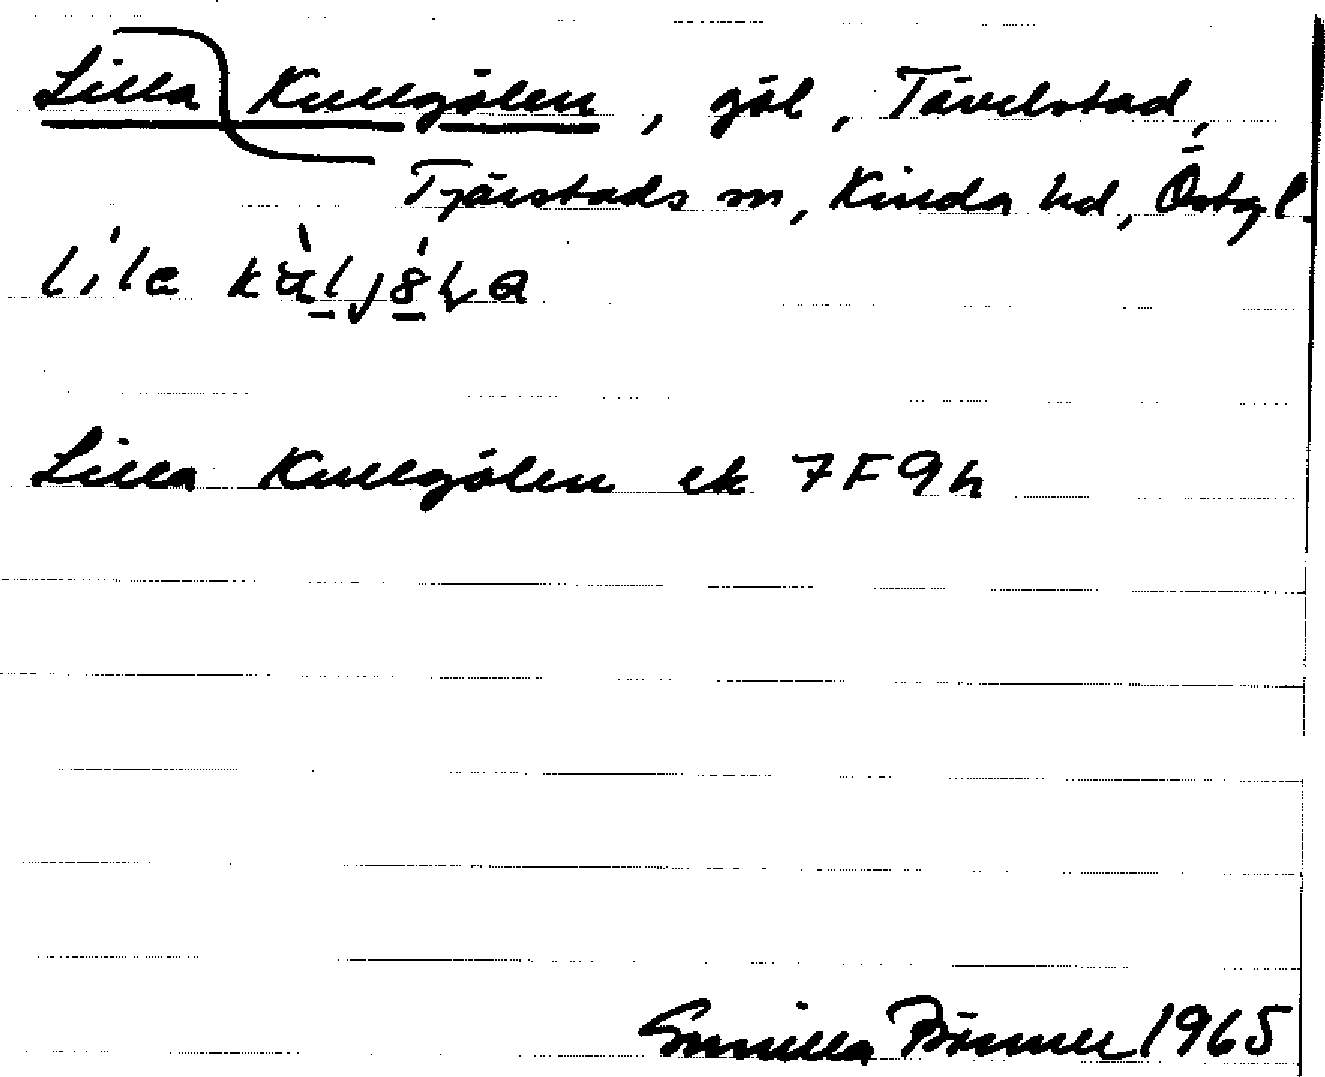 Lilla Kullgölen, göl, Tävelstad,
Tjärstads sn, Kinda hd, Östgl.
Lilla Kullgölen ek 7F9h
Gunilla 1965